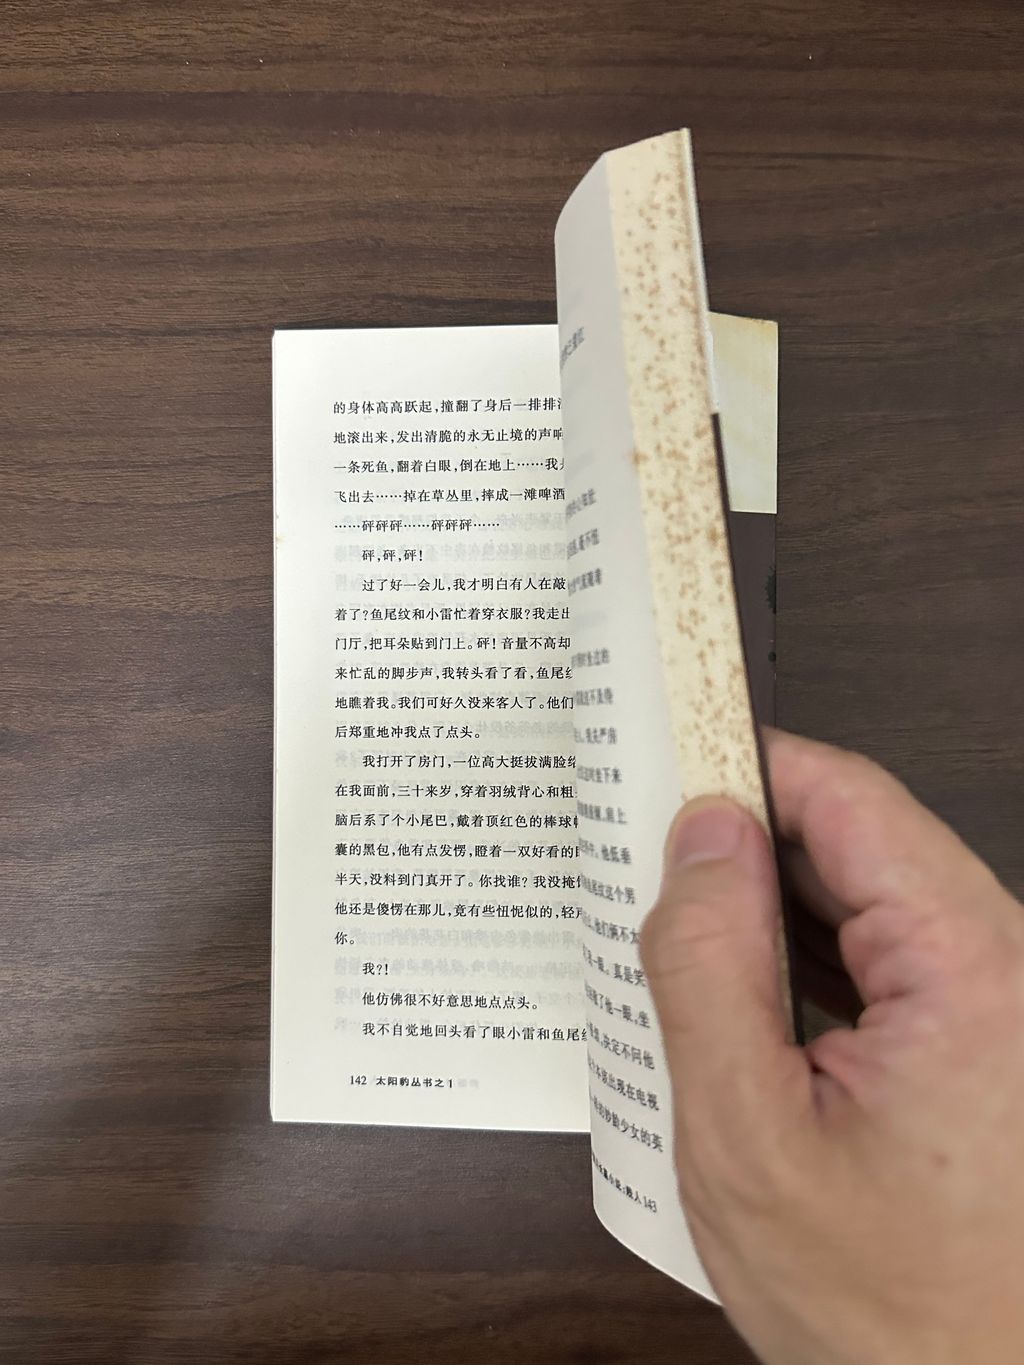 的身体高高跃起,撞翻了身后一排排
地滚出来,发出清脆的永无止境的声响
一条死鱼,翻着白眼,倒在地上……我
飞出去……掉在草丛里,摔成一滩啤酒
……砰砰砰……砰砰砰……
砰,砰,砰!
过了好一会儿,我才明白有人在敲
着了?鱼尾纹和小雷忙着穿衣服?我走出
门厅,把耳朵贴到门上。砰!音量不高却
来忙乱的脚步声,我转头看了看,鱼尾纹
地瞧着我。我们可好久没来客人了。他们
后郑重地冲我点了点头。
我打开了房门,一位高大挺拔满脸络
在我面前,三十来岁,穿着羽绒背心和粗
脑后系了个小尾巴,戴着顶红色的棒球帽
囊的黑包,他有点发愣,瞪着一双好看的
半天,没料到门真开了。你找谁?我没掩
他还是傻愣在那儿,竟有些忸怩似的,轻声
你。
我?!
他仿佛很不好意思地点点头。
我不自觉地回头看了眼小雷和鱼尾纹
142 太阳豹丛书之1
坐过的
不及待
我关严房
坐下来
肩上
他低垂
纹这个男
他们俩不太
一眼。真是笑
了他一眼,坐
决定不问他
本该出现在电视
的妙龄少女的英
长篇小说:毁人 143